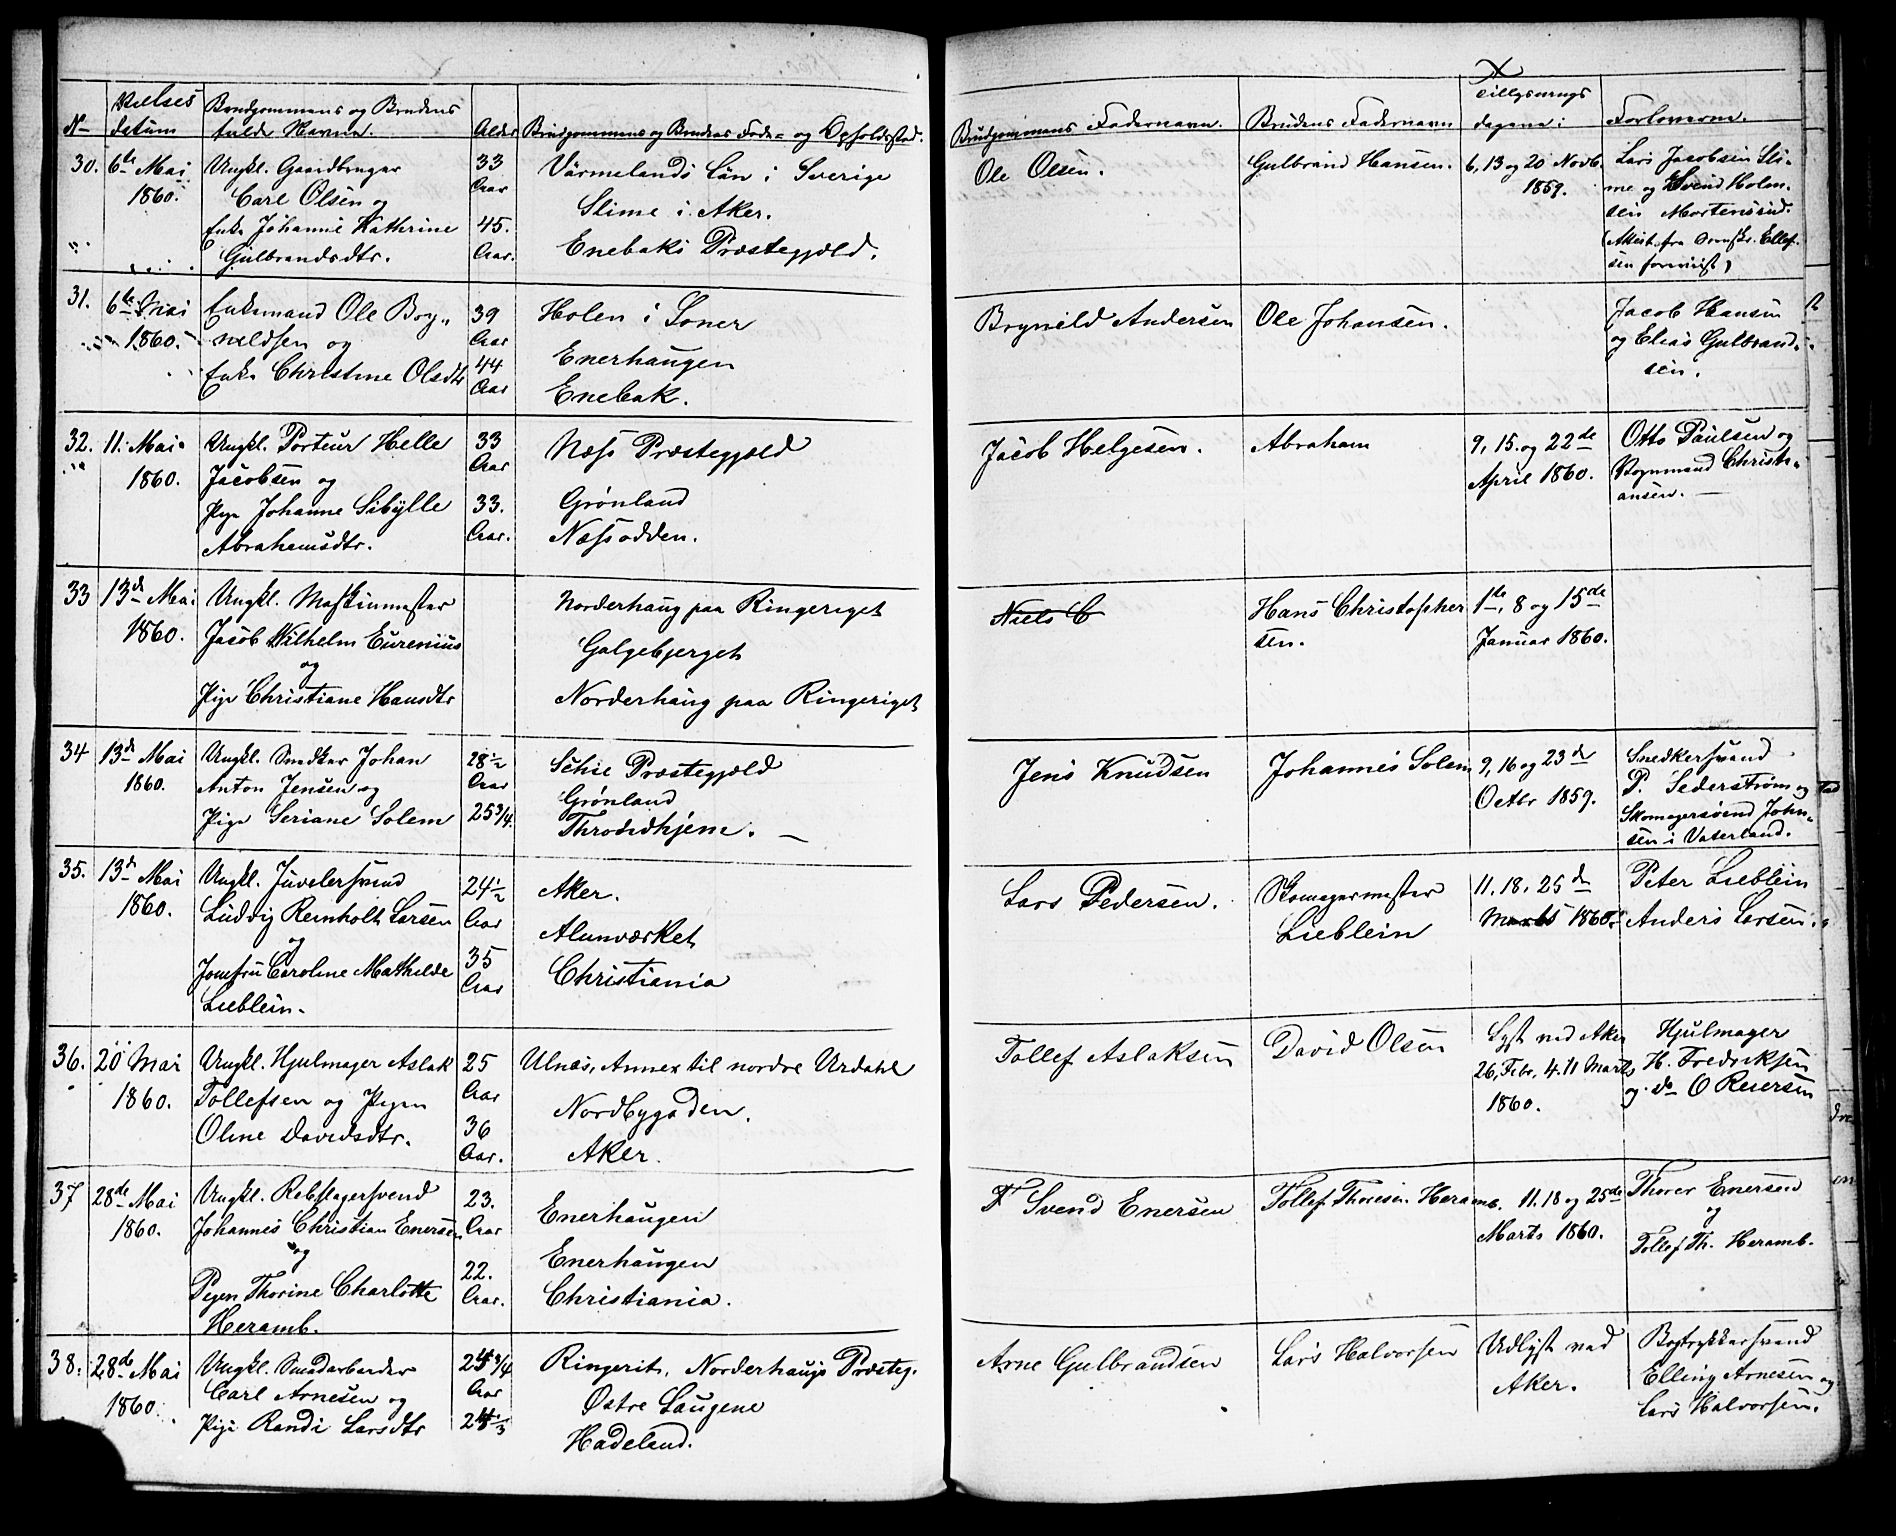 No Vielses Datum Brudgommens og Brudens fulde Navne. Alder Brudgommens og Brudens Føde- og Opholdssted. Brudgommens Fadernavn. Brudens Fadernavn Tillysnings dagene: Forloverne.
30. 6te Mai 1860.
Ungkl. Gaardbruger
Carl Olsen og
Enke Johanne Kathrine
Gulbrandsdtr.
33 Aar
45. Aar.
Värmelands Län i Sverige
Slime i Aker.
Enebaks Præstegjæld.
Ole Olsen.
Gulbrand Hansen.
6, 13 og 20 Novb.
1859.
Lars Jacobsen Sli-
me og Svend Holm-
sen Mortensrud.
(Attest fra Ellef-
sen foreviist)
31. 6te Mai 1860.
Enkemand Ole Bry„
nildsen og
Enke Christine Olsdtr
39 Aar
44 Aar
Holen i Soner
Enerhaugen
Enebak.
Brynild Andersen
Ole Johansen.
Jacob Hansen
og Elias Gulbrand-
sen.
32. 11. Mai 1860.
Ungkl. Porteur Helle
Jacobsen og
Pige Johanne Sibylle
Abrahamsdtr.
33 Aar
33. Aar.
Næss Præstegjæld
Grønland
Næssodden.
Jacob Helgesen.
Abraham
9, 15. og 22de
April 1860.
Otto Paulsen og
Vognmand Christi-
ansen. —
33 13de Mai 1860.
Ungkl. Maskinmester
Jacob Wilhelm Eurenius
og
Pige Christiane Hansdtr
Norderhaug paa Ringeriget
Galgebjerget
Norderhaug paa Ringeriget
Niels C
Hans Christopher
sen.
1te, 8 og 15de
Januar 1860.
34 13de Mai 1860.
Ungkl. Snedker Johan
Anton Jensen og
Pige Seriane Solem
28½ Aar
25¾.
Schie Præstegjæld
Grønland
Throndhjem. —
Jens Knudsen
Johannes Solem
9, 16 og 23de
Octbr 1859.
Snedkersvend
P. Sederstrøm og
Skomagersvend John-
sen i Vaterland.
35. 13de Mai 1860.
Ungkl. Juvelersvend
Ludvig Reinholt Larsen
og
Jomfru Caroline Mathilde
Lieblein.
24½ Aar
35 Aar
Aker.
Alunværket
Christiania
Lars Pedersen.
Skomagermester
Lieblein
11. 18. 25de
Marts 1860.
Peter Lieblein
Anders Larsen.
36. 20 Mai 1860.
Ungkl. Hjulmager Aslak
Tollefsen og Pigen
Oline Davidsdtr.
25 Aar
36 Aar.
Ulnæs, Annex til nordre Urdahl
Nordbygaden.
Aker.
Tollef Aslaksen
David Olsen
Lyst ved Aker
26, Febr, 4. 11 Marts
1860.
Hjulmager
H. Fredriksen
og do O Reiersen
37 28de Mai 1860.
Ungkl. Rebslagersvend
Johannes Christian Enersen
og
Pigen Thorine Charlotte
Heramb.
23. Aar
22. Aar.
Enerhaugen
Enerhaugen
Christiania.
Svend Enersen
Tollef Thoresen Heramb.
11. 18 og 25de
Marts 1860.
Thorer Enersen
og
Tollef Th. Heramb.
38. 28de Mai 1860.
Ungkl. Smedarbeider
Carl Arnesen og
Pige Randi Larsdtr
Aar
Ringerik, Norderhaugs Præsteg.
Østre Laugene
Hadeland.
Arne Gulbrandsen
Lars Halvorsen
Udlyst ved
Aker.
Bogtrykkersvend
Elling Arnesen og
Lars Halvorsen.